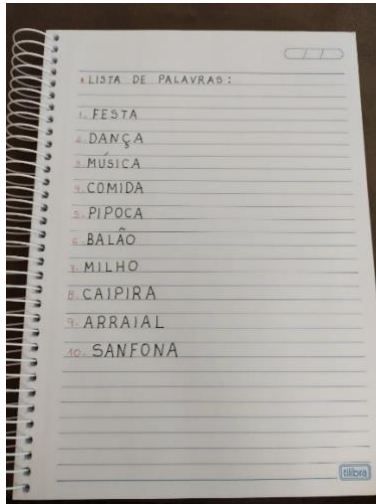 LISTA DE PALAVRAS:
1. FESTA
2. DANÇA
3. MÚSICA
4. COMIDA
5. PIPOCA
6. BALÃO
7. MILHO
8. CAIPIRA
9. ARRAIAL
10. SANFONA
tilibra